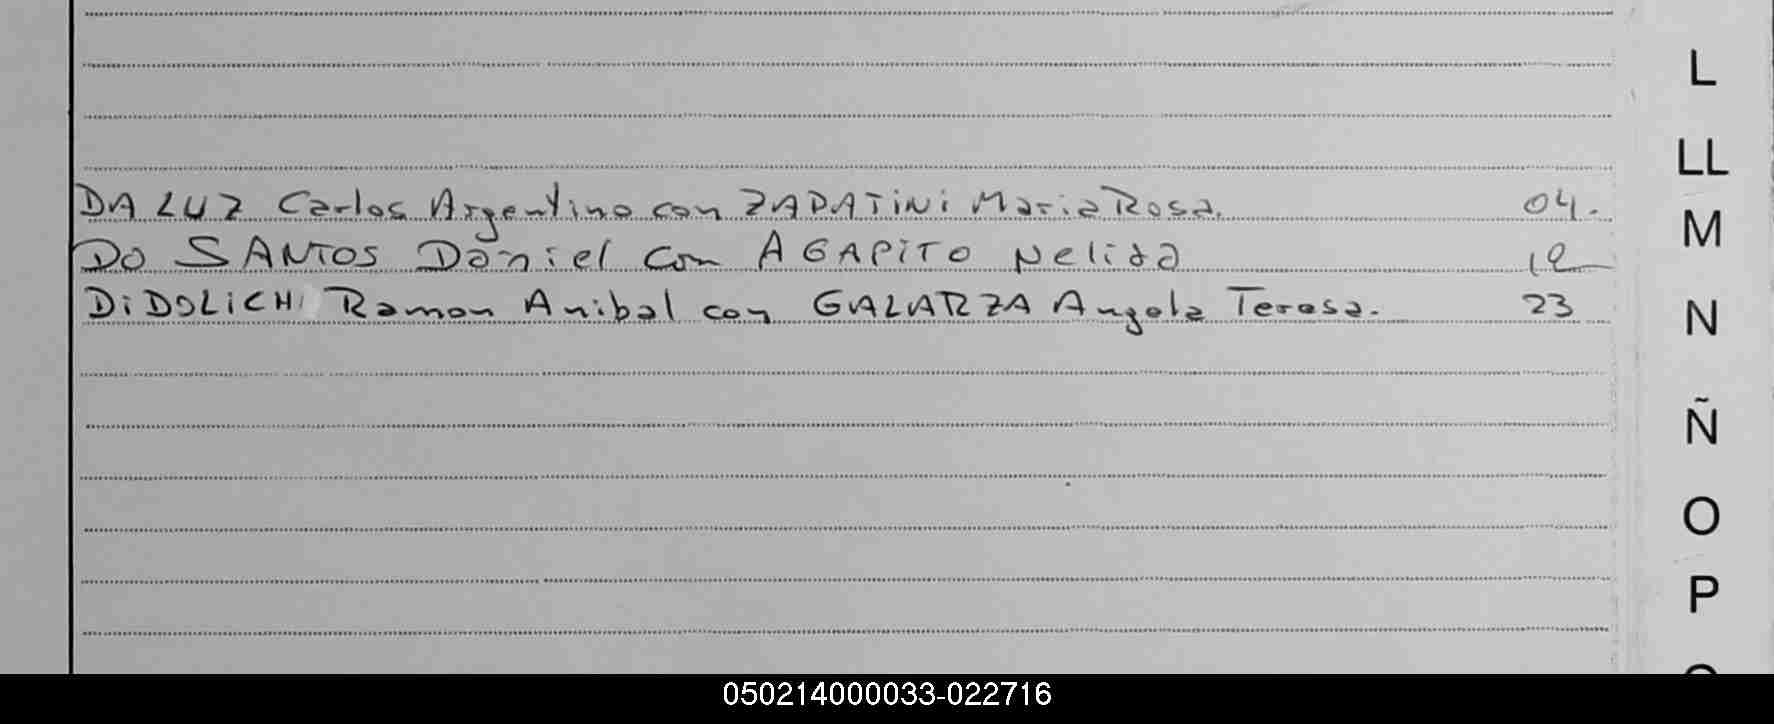 DA LUZ Carlos Argentino con ZAPATiNi Maria Rosa. 04.
DO SANTOS Daniel con AGAPiTO Nelida 12
DiDOLiCH Ramon Anibal con GALARZA Angela Teresa. 23
L
LL
M
N
Ñ
O
P
050214000033-022716